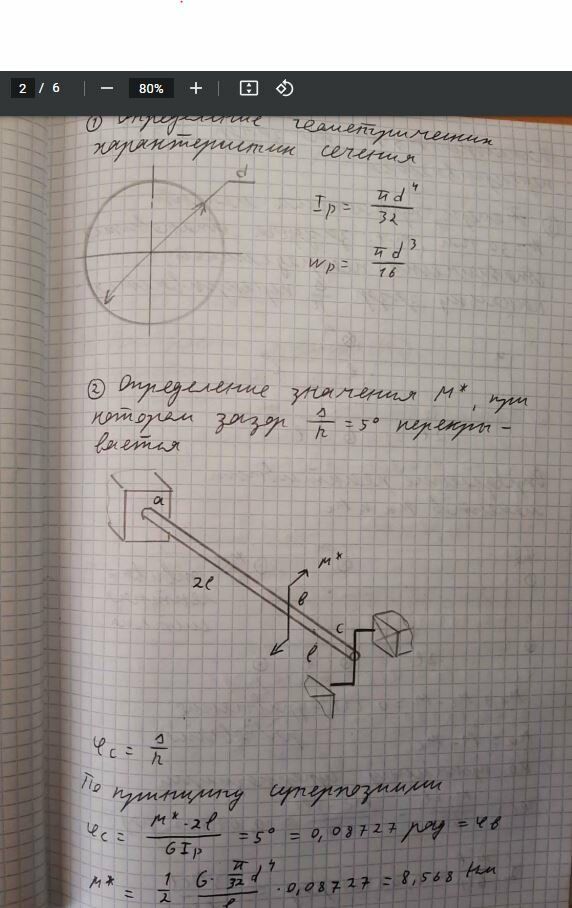 2 / 6
80%
① Определение геометрических
характеристик сечения
d
Ip = πd⁴/32
Wp = πd³/16
② Определение значения М*, при
котором зазор Δ/h = 5° перекры-
вается
a
М*
2l
в
c
l
φc = Δ/h
По принципу суперпозиции
φc = М*·2l/GIp = 5° = 0,08727 рад = φв
М* = 1/2 G·π/32 d⁴/l · 0,08727 = 8,568 Нм